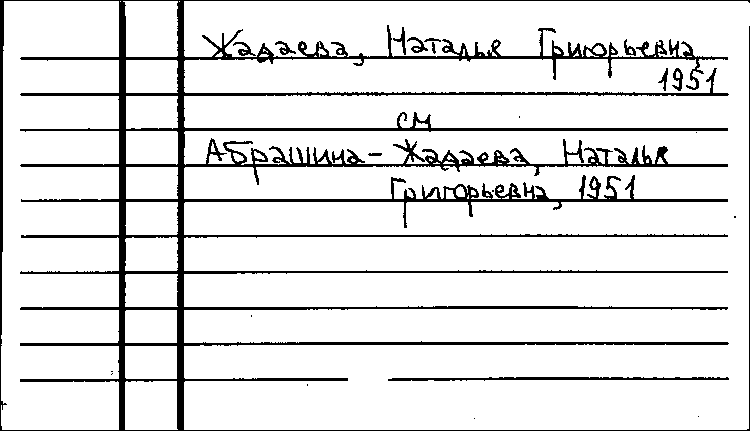 Жадаева, Наталья Григорьевна,
1951
см
Абрашина - Жадаева, Наталья
Григорьевна, 1951